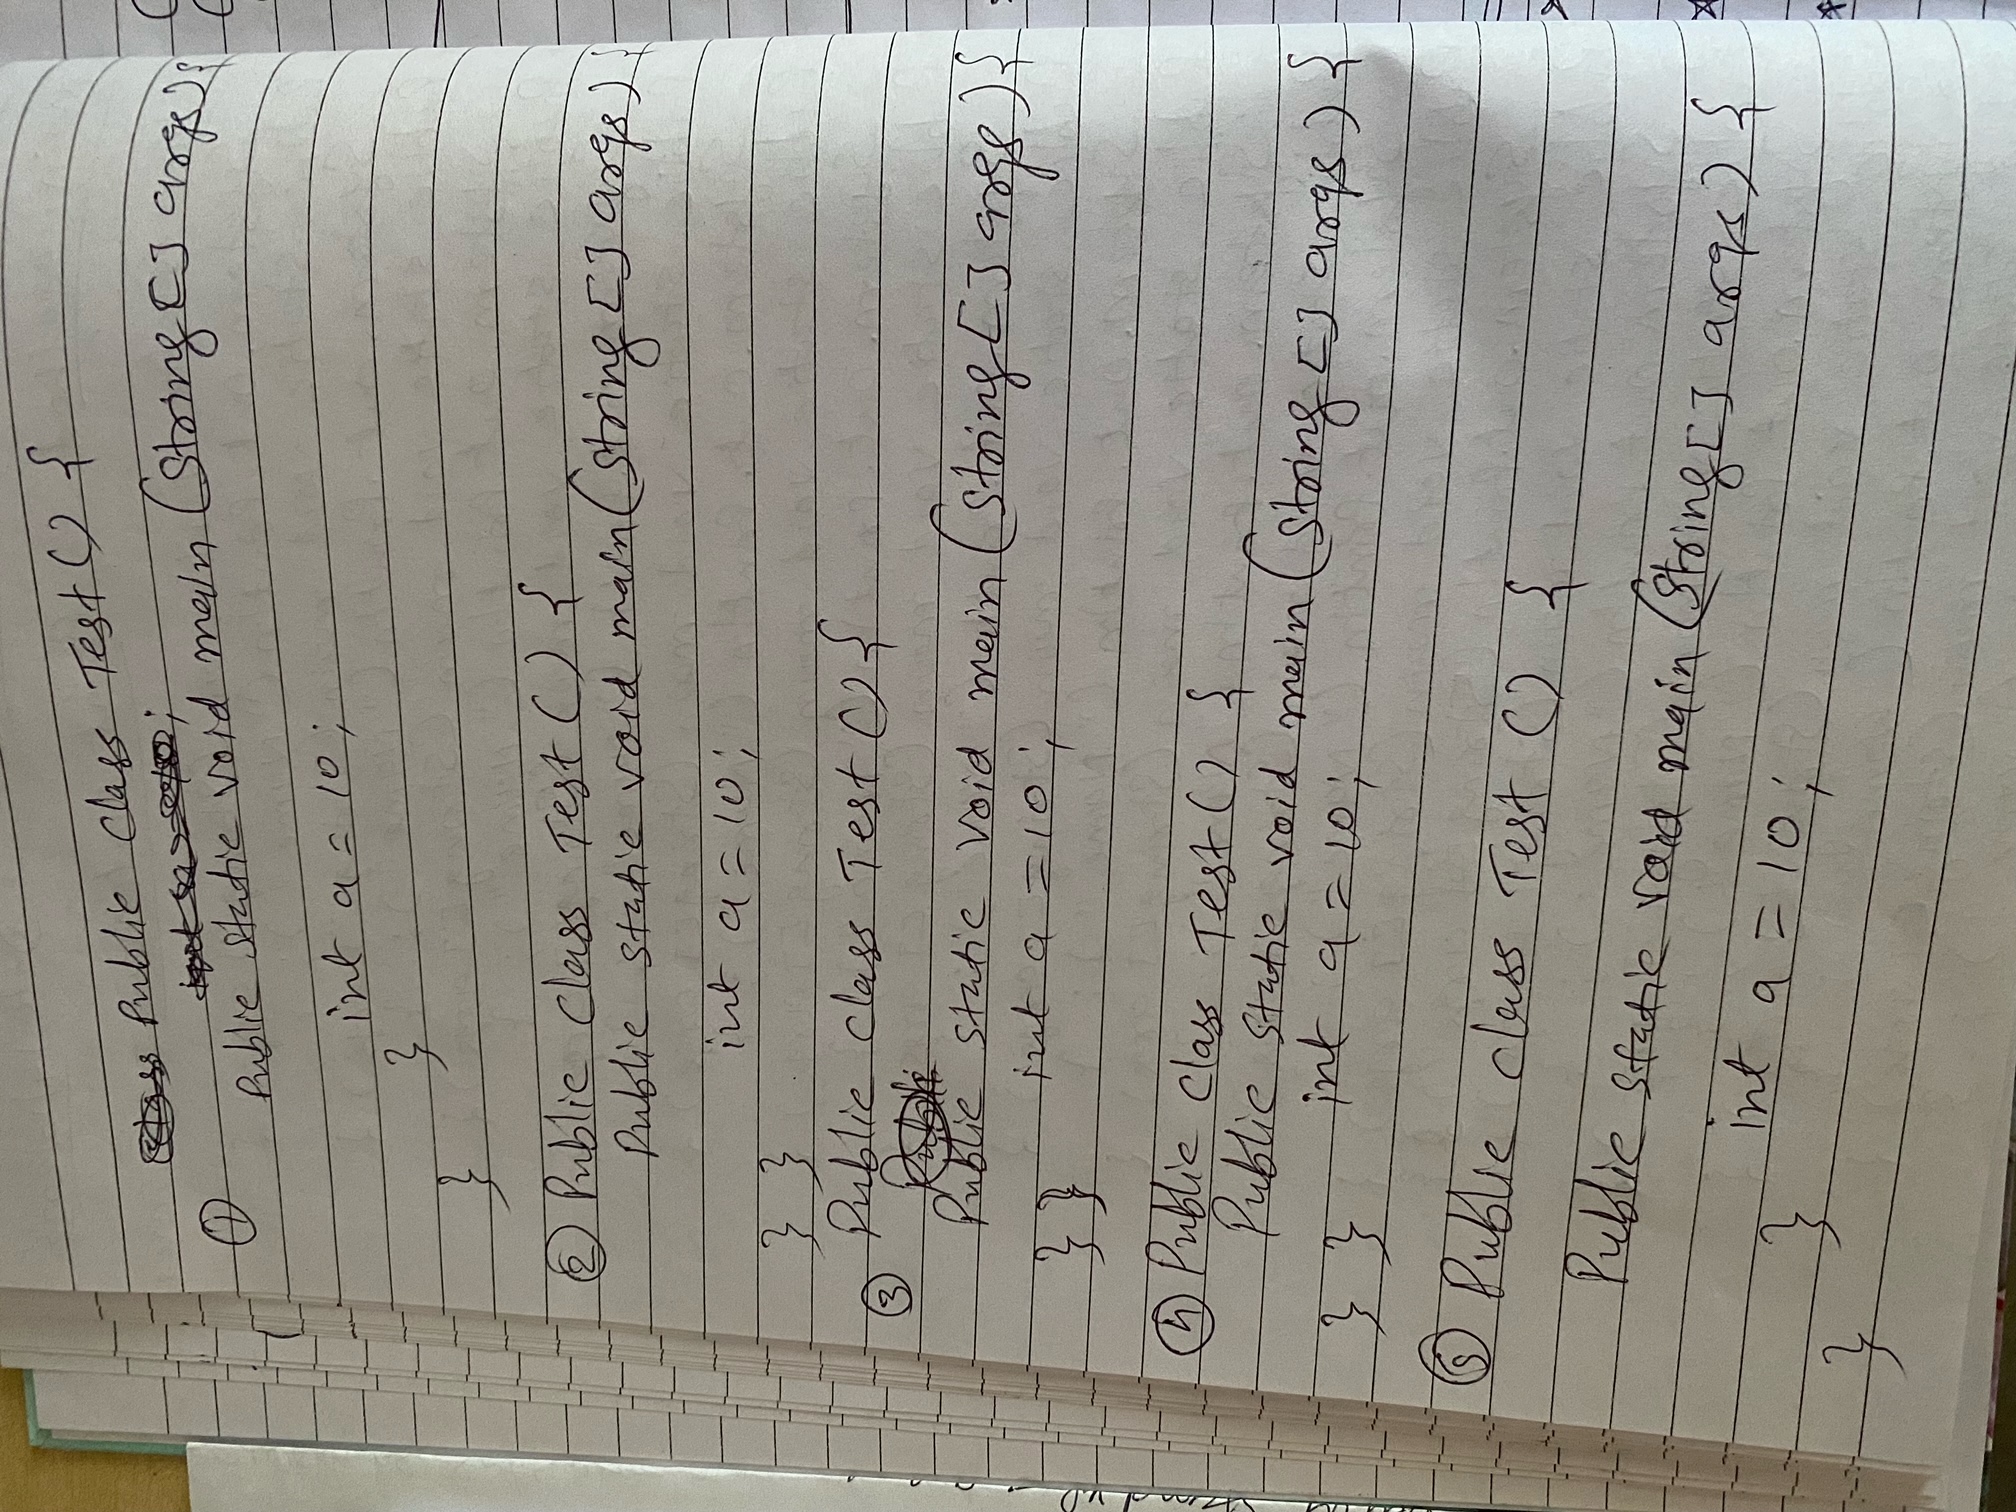 Public Class Test () {
① Public Static Void main (String [] args) {
int a = 10;
}
}
② Public Class Test () {
Public static void main (String [] args) {
int a = 10;
} }
③ Public class Test () {
Public static Void main (String [] args) {
int a = 10;
} }
④ Public Class Test () {
Public Static void main (String [] args) {
int a = 10;
} }
⑤ Public class Test () {
Public static void main (String [] args) {
int a = 10;
}
}